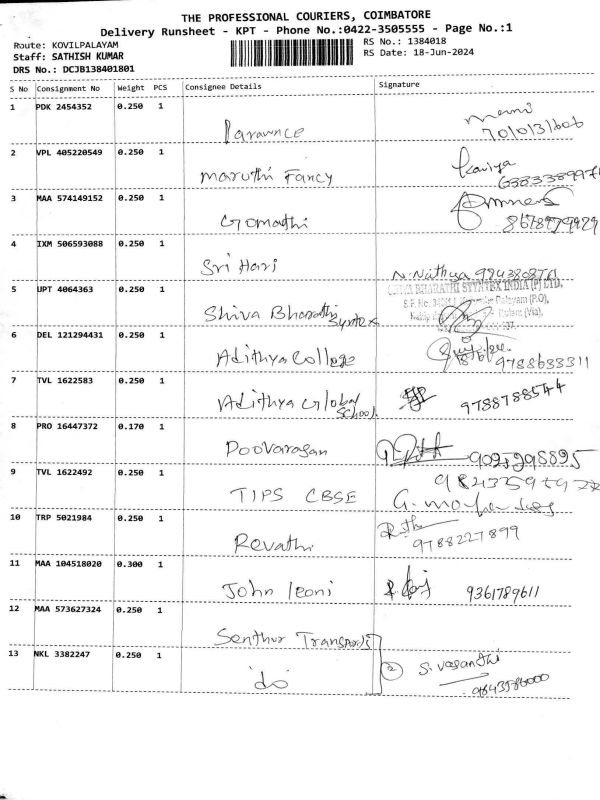 THE PROFESSIONAL COURIERS, COIMBATORE
Delivery Runsheet - KPT - Phone No.:0422-3505555 - Page No.:1
Route: KOVILPALAYAM
RS No.: 1384018
Staff: SATHISH KUMAR
RS Date: 18-Jun-2024
DRS No.: DCJB138401801
S No Consignment No Weight PCS Consignee Details Signature
1 PDK 2454352 0.250 1
2 VPL 405220549 0.250 1 Maruthi Fancy Kaviya
3 MAA 574149152 0.250 1 Gomathi
4 IXM 506593088 0.250 1 Sri Hari N. Nithya
5 UPT 4064363 0.250 1 Shiva Bharathi Syntex
BHARATHI SYNTEX INDIA (P) LTD,
6 DEL 121294431 0.250 1 Adithya College 9788633311
7 TVL 1622583 0.250 1 Adithya Global School 9788788544
8 PRO 16447372 0.170 1 Poovarasan
9 TVL 1622492 0.250 1 TIPS CBSE
10 TRP 5021984 0.250 1 Revathi 9788227899
11 MAA 104518020 0.300 1 John leoni 9361789611
12 MAA 573627324 0.250 1 Senthur Transport
13 NKL 3382247 0.250 1 do 2 S. Vasanthi